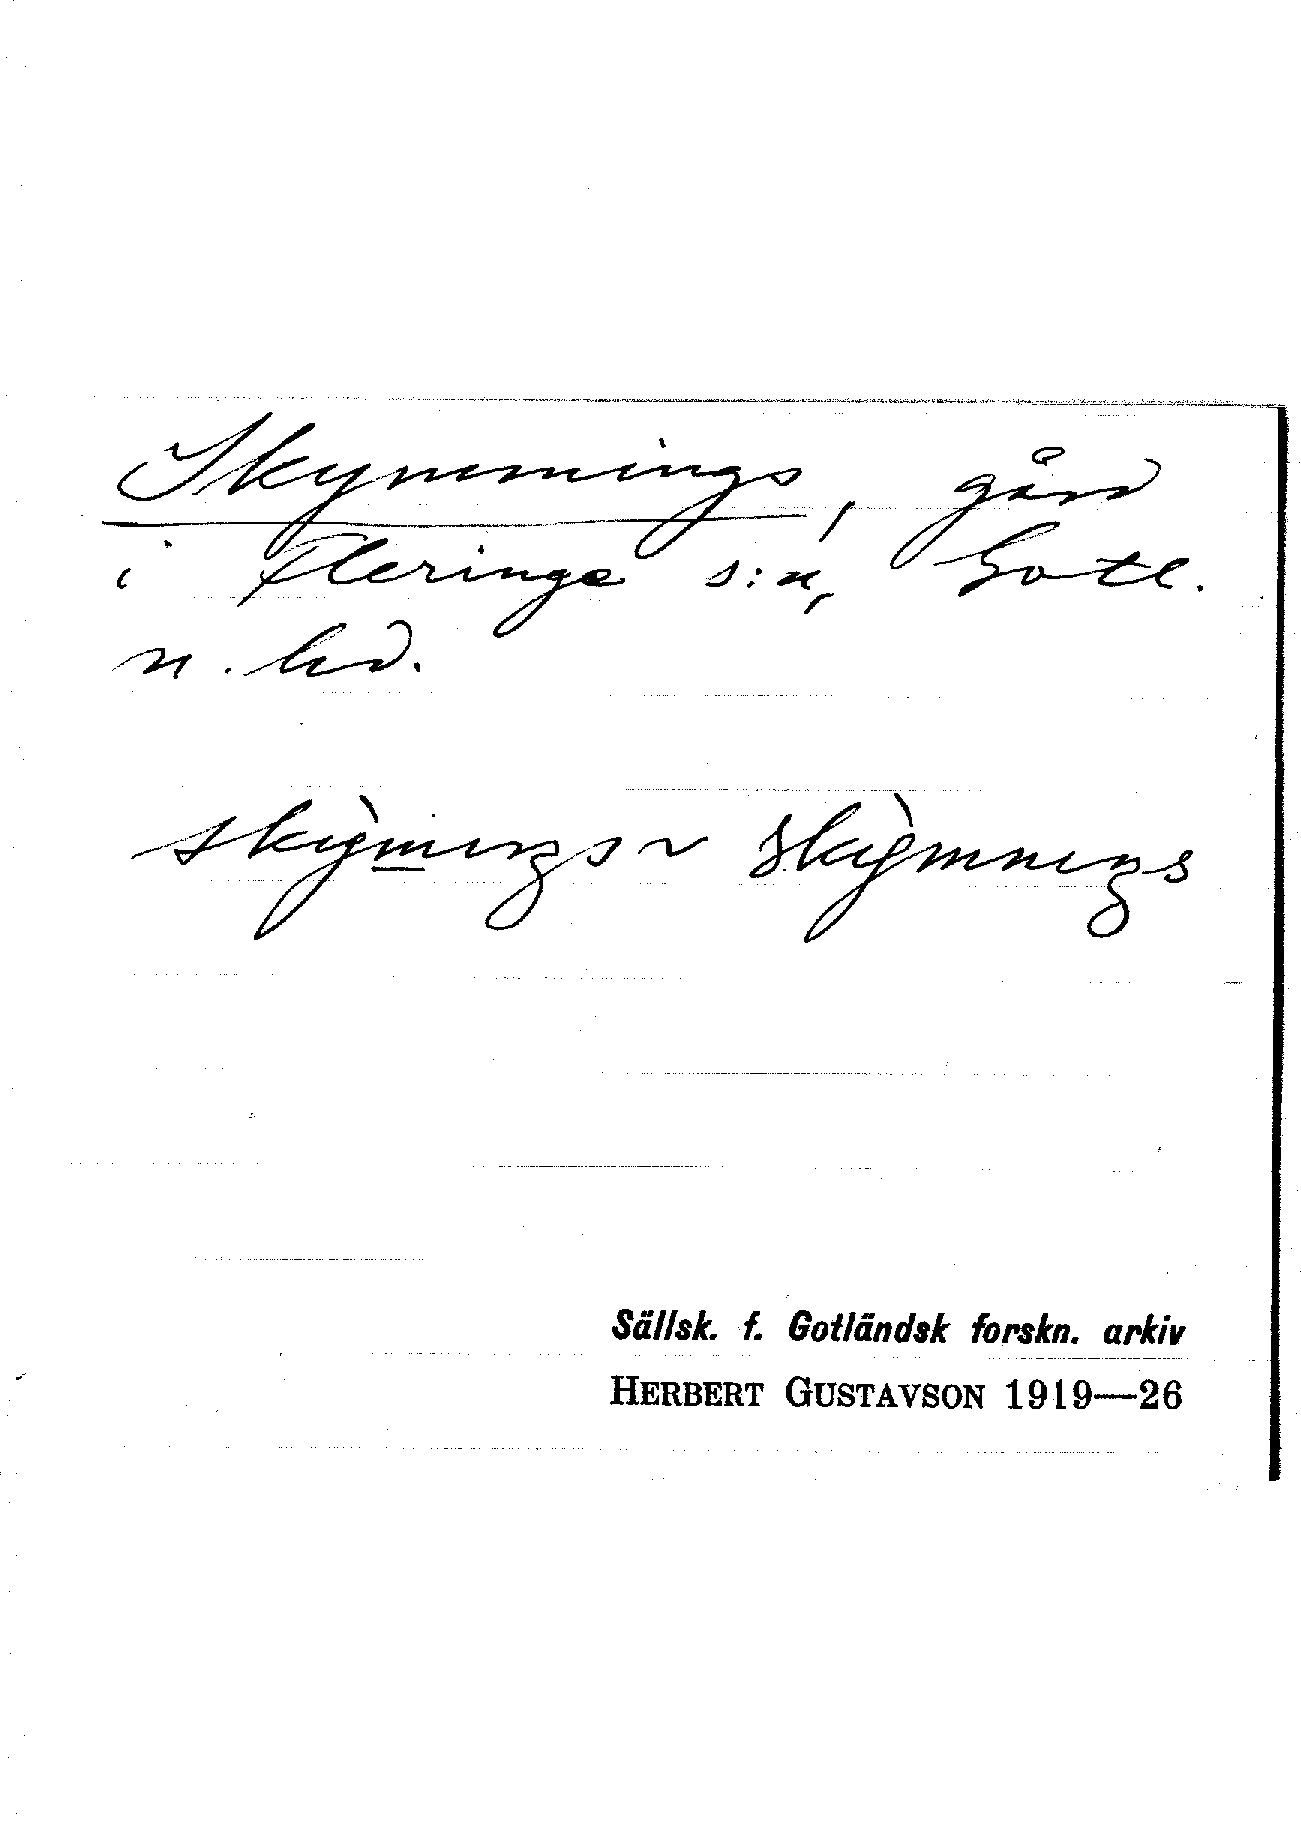 Skymmings, gård
i Fleringe s:n, Gotl.
n. hd.
skỳmıŋs ~ skỳmnıŋs
Sällsk. f. Gotländsk forskn. arkiv
HERBERT GUSTAVSON 1919—26